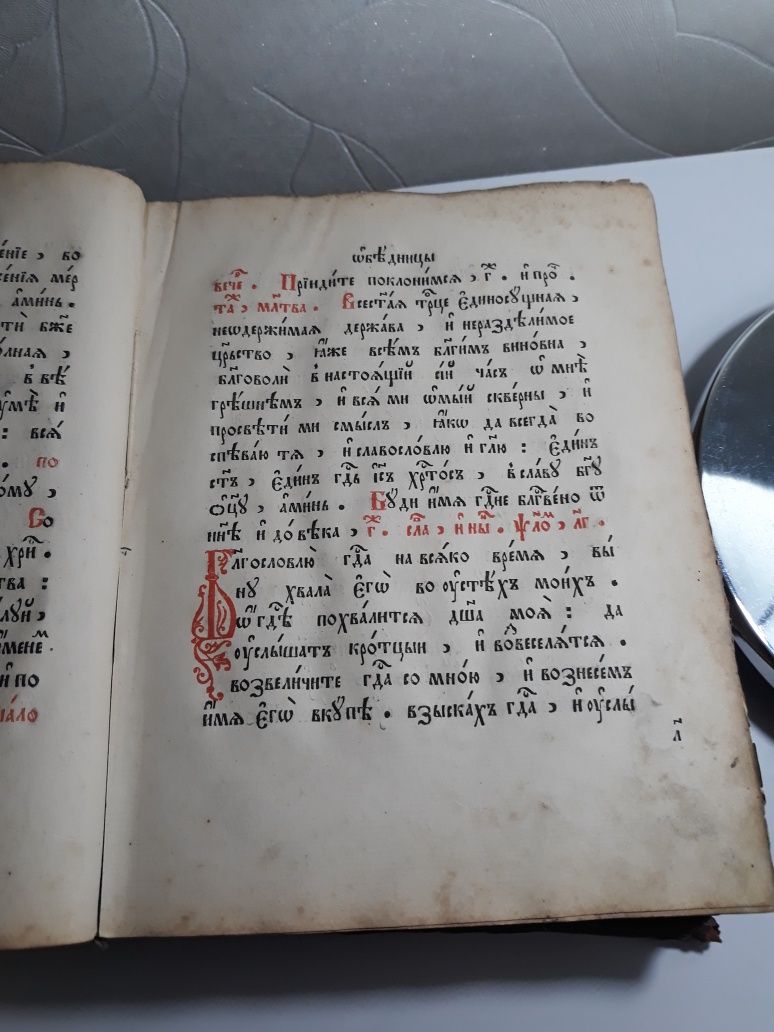 е́нїе , во
се́нїѧ мер
а҆ми́нь .
бж҃е
лнаѧ ,
в вѣ́
ꙋмѣ̀ и҆
: всѧ̀
. по
ому ,
Со
хрⷭ҇и .
тва :
лꙋй ,
и҆́менеᷟ
и҆ по
ча́ло
ѡ҆бѣ́дницы
вече́ⷬ . Прїиди́те поклони́мсѧ , г҃ⷤ . и҆ про́ⷱ .
таⷤ҇ , млⷭ҇тва . Всест҃а́ѧ трⷪ҇це є҆диносꙋ́щнаѧ ,
неѡдержи́маѧ держа́ва , и҆ нераздѣли́мое
црⷭ҇тво , ꙗ҆́же всѣ́мъ бл҃ги́мъ вино́вна ,
бл҃говолѝ в настоѧ́щїй сі́й ча́съ ѡ҆ мнѣ̀
грѣ́шнѣмъ , и҆ всѧ̀ ми ѡ҆мы́й скве́рны , и҆
просвѣти́ ми смы́слъ , ꙗ҆́кѡ да всегда̀ во
спѣва́ю тѧ , и҆ славосло́влю и҆ гл҃ю : є҆ди́нъ
ст҃ъ , є҆ди́нъ гдⷭ҇ь і҆с҃ъ хрⷭ҇то́съ , в сла́вꙋ бг҃ꙋ
ѻ҆ц҃ꙋ , а҆ми́нь . Бꙋ́ди и҆́мѧ гдⷭ҇не бл҃гве́но ѿ
нн҃ѣ и҆ до вѣ́ка , г҃ⷤ . сла́ⷡ , и҆ ны́ⷩ . ѱло́ⷨ , л҃г .
Бл҃гословлю̀ гдⷭ҇а на всѧ́ко вре́мѧ , вы́
нꙋ хвала̀ є҆гѡ̀ во ᲂу҆стѣ́хъ мои́хъ .
ѡ҆ гдⷭ҇ѣ похва́литсѧ дш҃а моѧ̀ : да
ᲂу҆слы́шатъ кро́тцыи , и҆ во̂звеселѧ́тсѧ .
возвели́чите гдⷭ҇а со мно́ю , и҆ вознесе́мъ
и҆́мѧ є҆гѡ̀ вкꙋ́пѣ . взыска́хъ гдⷭ҇а , и҆ ᲂу҆слы́
л҃